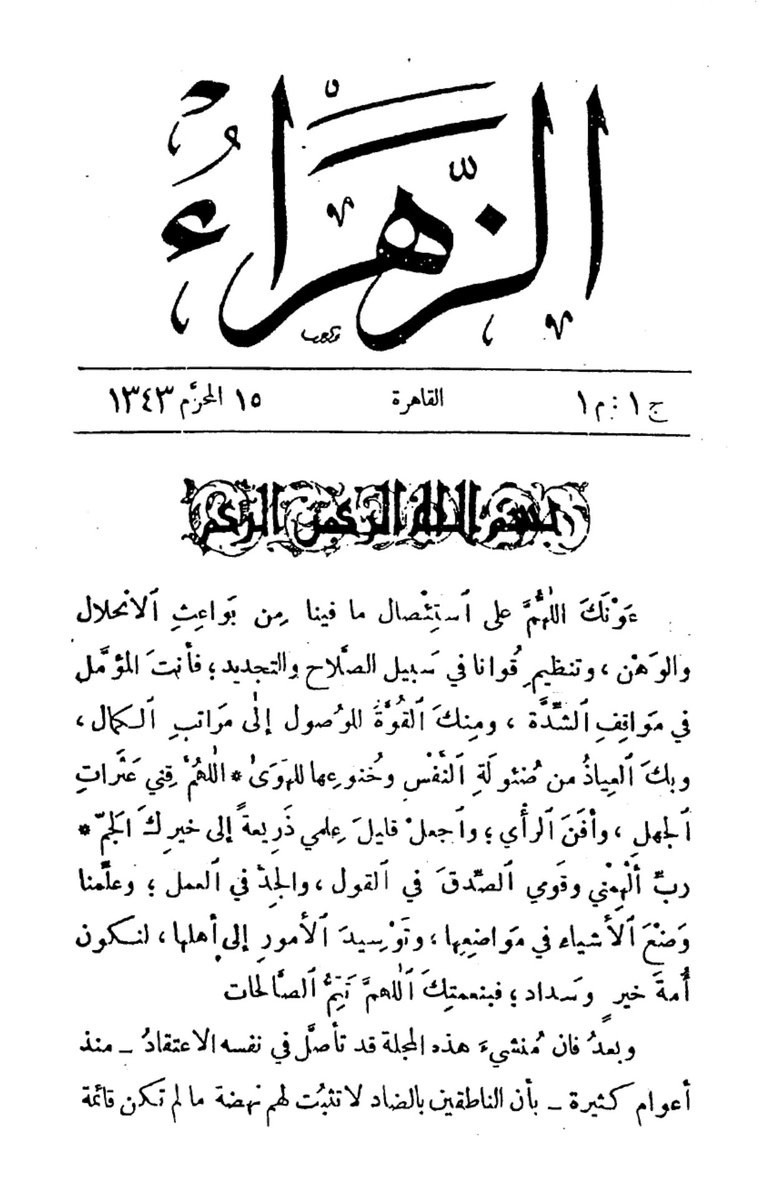 الزَّهراءُ
ج ١ : م ١ القاهرة ١٥ المحرَّم ١٣٤٣
بسم الله الرحمن الرحيم
عَوْنَكَ اللهُمَّ على ٱستِئْصال ما فينا مِن بَواعِثِ ٱلانحلال
والوَهْن ، وتنظيمِ قُوانا في سَبيل الصَّلاح والتجديد ؛ فأنتَ المؤمَّل
في مَواقِفِ ٱلشِّدَّة ، ومِنكَ ٱلقُوَّةُ للوُصول إلى مَراتبِ ٱلكمال ،
وبكَ ٱلعِياذُ من ضُئولَةِ ٱلنَّفْسِ وخُنوعِها للهَوَىٰ * اللهُمَّ قِني عَثَراتِ
ٱلجهلِ ، وأَفَنَ ٱلرأْي ؛ وٱجعلْ قليلَ عِلمي ذَرِيعةً إلى خيرِكَ ٱلجَمّ *
ربِّ أَلْهِمْني وقَومي ٱلصِّدقَ في القول ، والجِدَّ في العمل ؛ وعلِّمنا
وَضْعَ ٱلأشياء في مَواضِعِها ، وتَوْسِيدَ ٱلأمورِ إلى أهلها ، لنكون
أُمةَ خيرٍ وسَداد ؛ فبنعمتِكَ ٱللهمَّ تَتِمُّ ٱلصَّالحات
وبعدُ فان مُنشيءَ هذه المجلة قد تأصَّل في نفسه الاعتقادُ ـ منذ
أعوام كثيرة ـ بأن الناطقين بالضاد لا تثبُت لهم نهضة ما لم تكن قائمة